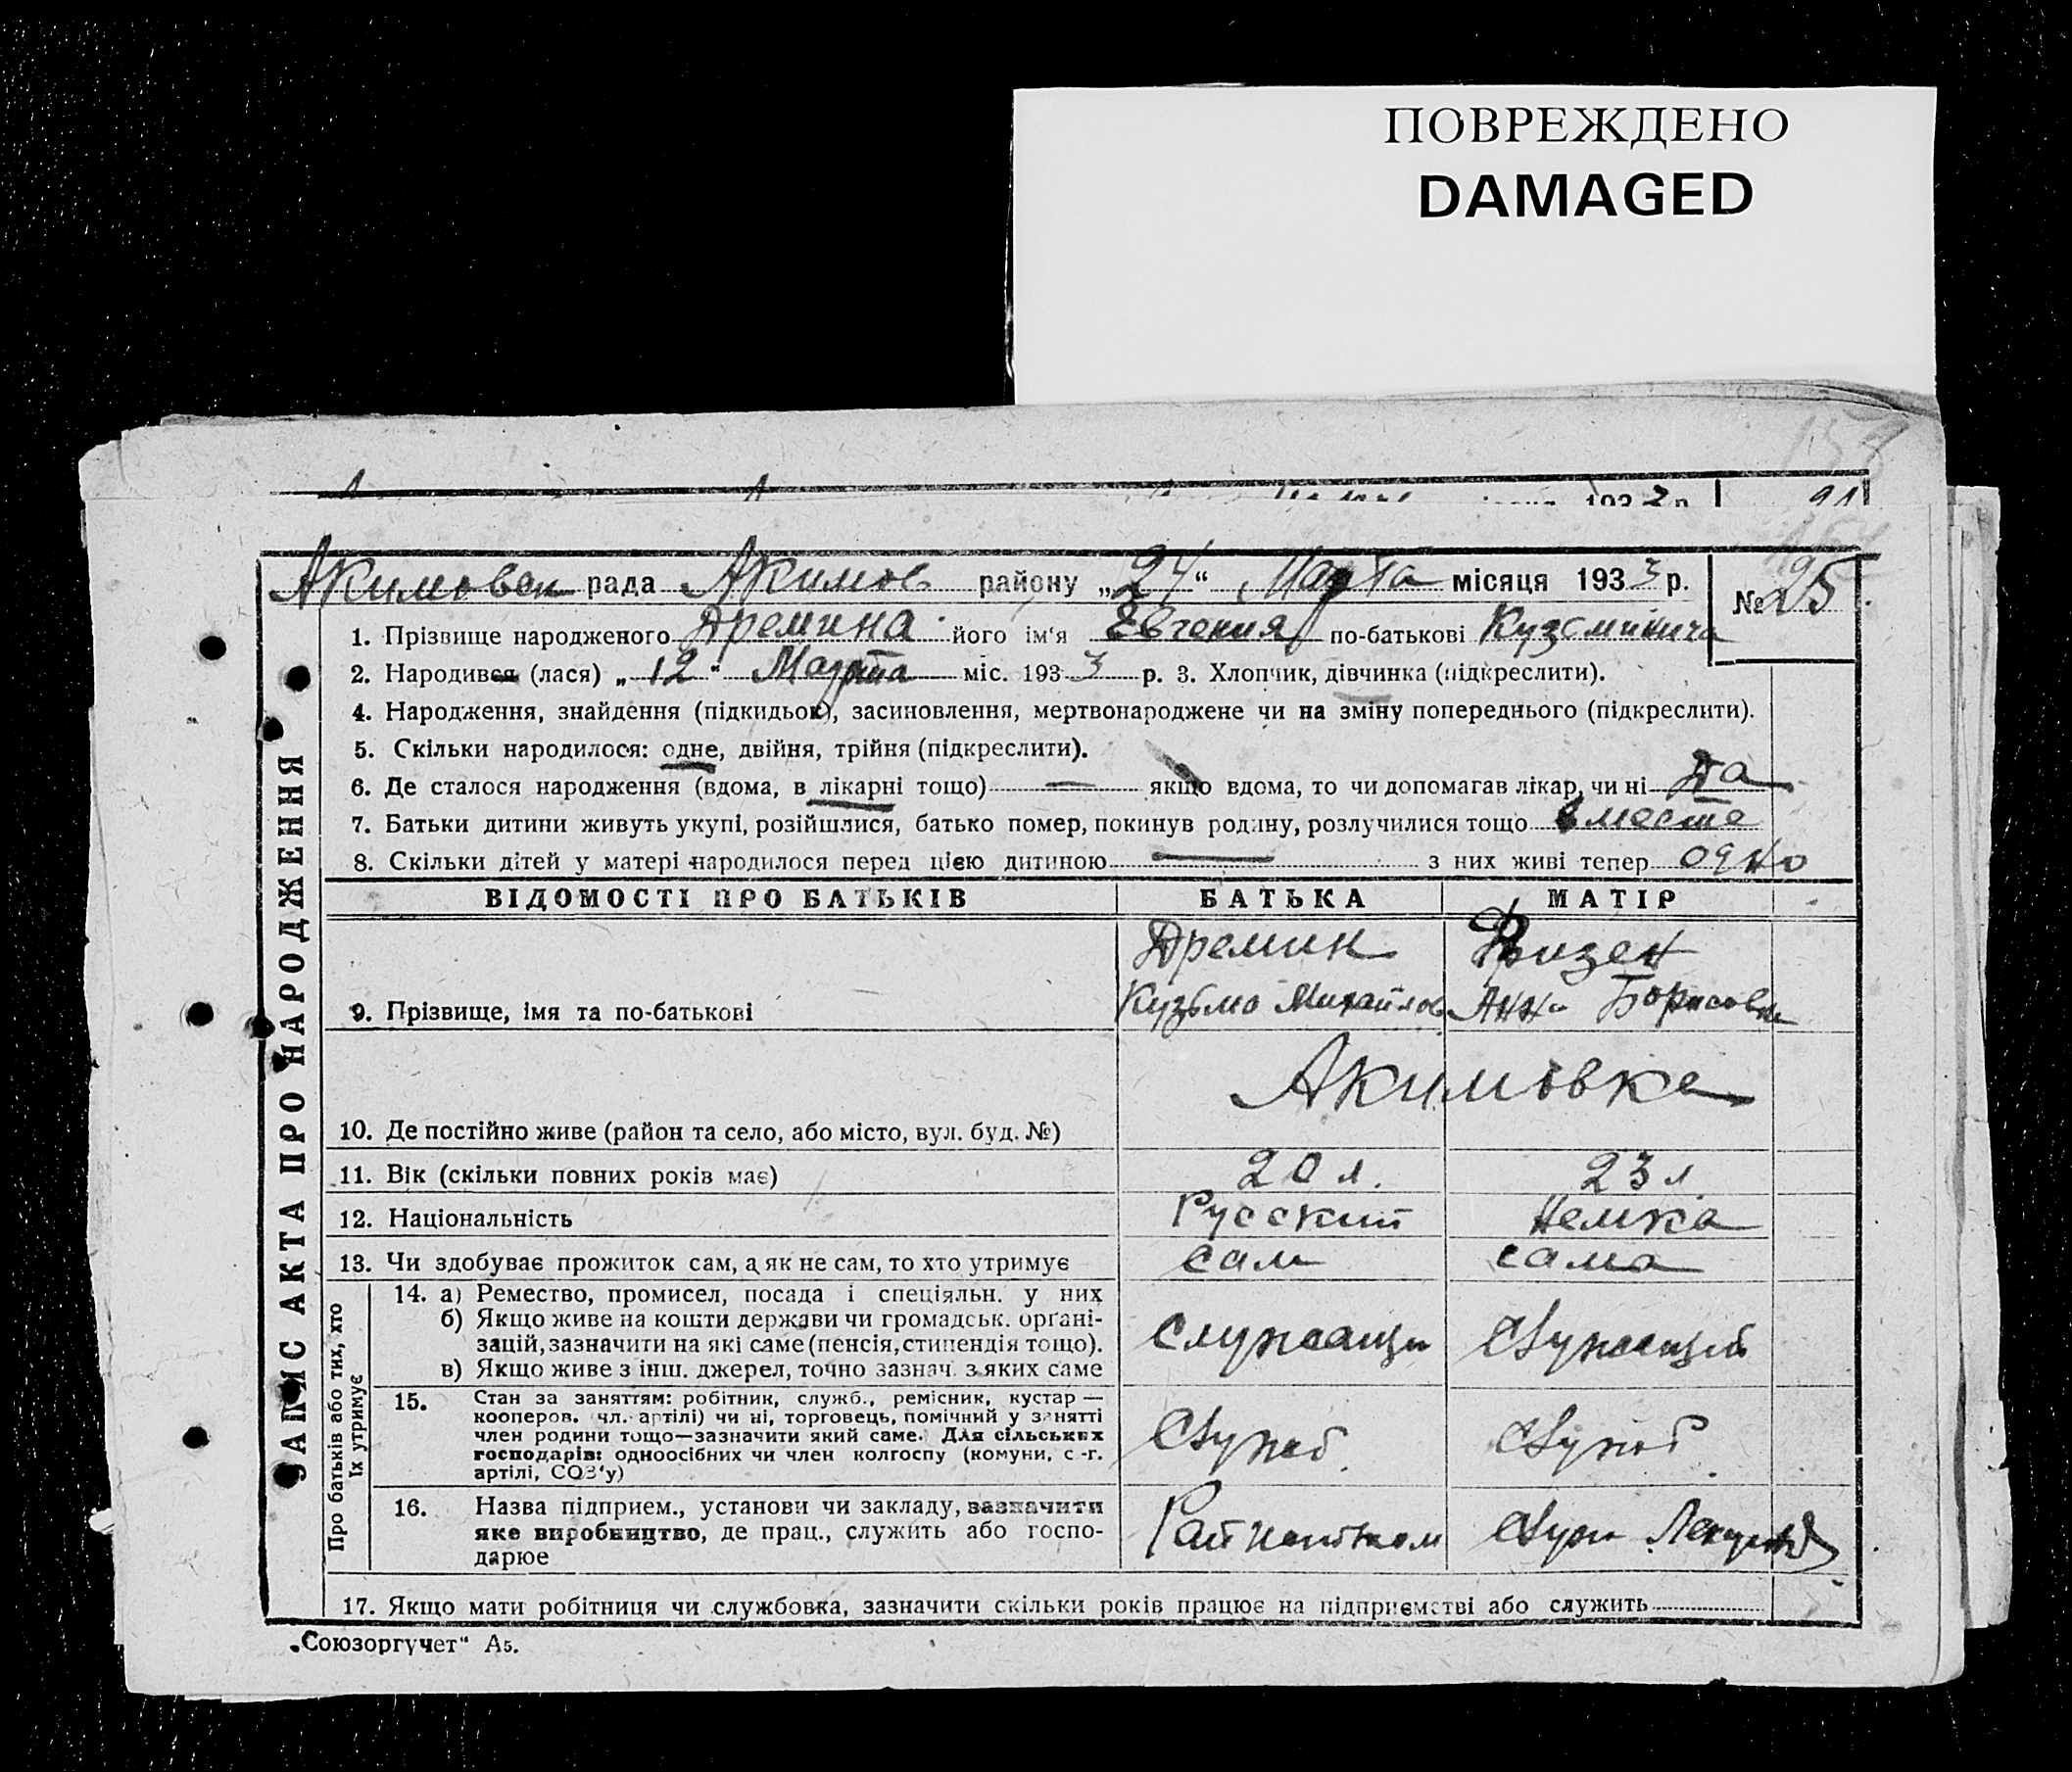 ПОВРЕЖДЕНО
DAMAGED
153
193 р. 91
Акимовск рада Акимов району „24“ Марта місяця 1933 р. № 25
1. Прізвище народженого Дремина його ім‘я Евгения по-батькові Кузьминича
2. Народився (лася) „12“ Марта міс. 1933 р. 3. Хлопчик, дівчинка (підкреслити).
4. Народження, знайдення (підкидьок), засиновлення, мертвонароджене чи на зміну попереднього (підкреслити).
5. Скільки народилося: одне, двійня, трійня (підкреслити).
6. Де сталося народження (вдома, в лікарні тощо) — якщо вдома, то чи допомагав лікар, чи ні Да
7. Батьки дитини живуть укупі, розійшлися, батько помер, покинув родину, розлучилися тощо вместе
8. Скільки дітей у матері народилося перед цією дитиною — з них живі тепер одно
ВІДОМОСТІ ПРО БАТЬКІВ БАТЬКА МАТІР
Дремин Физен
9. Прізвище, імя та по-батькові Кузьмо Михайлов Анна Борисовна
Акимовка
10. Де постійно живе (район та село, або місто, вул. буд. №)
11. Вік (скільки повних років має) 20 л. 23 л.
12. Національність Русский Немка
13. Чи здобуває прожиток сам, а як не сам, то хто утримує сам сама
14. а) Ремество, промисел, посада і спеціяльн. у них
б) Якщо живе на кошти держави чи громадськ. орґані-
зацій, зазначити на які саме (пенсія, стипендія тощо). Служащи Служащий
в) Якщо живе з інш. джерел, точно зазнач. з яких саме
15. Стан за заняттям: робітник, служб., ремісник, кустар —
кооперов. чл. артілі) чи ні, торговець, помічний у занятті
член родини тощо—зазначити який саме. Для сільських Служб. Служб.
господарів: одноосібних чи член колгоспу (комуни, с.-г.
артілі, СОЗ‘у)
16. Назва підприєм., установи чи закладу, зазначити
яке виробництво, де прац., служить або госпо-
дарює
17. Якщо мати робітниця чи службовка, зазначити скільки років працює на підприємстві або служить
ЗАПИС АКТА ПРО НАРОДЖЕННЯ
Про батьків або тих, хто їх утримує
„Союзоргучет“ А5.